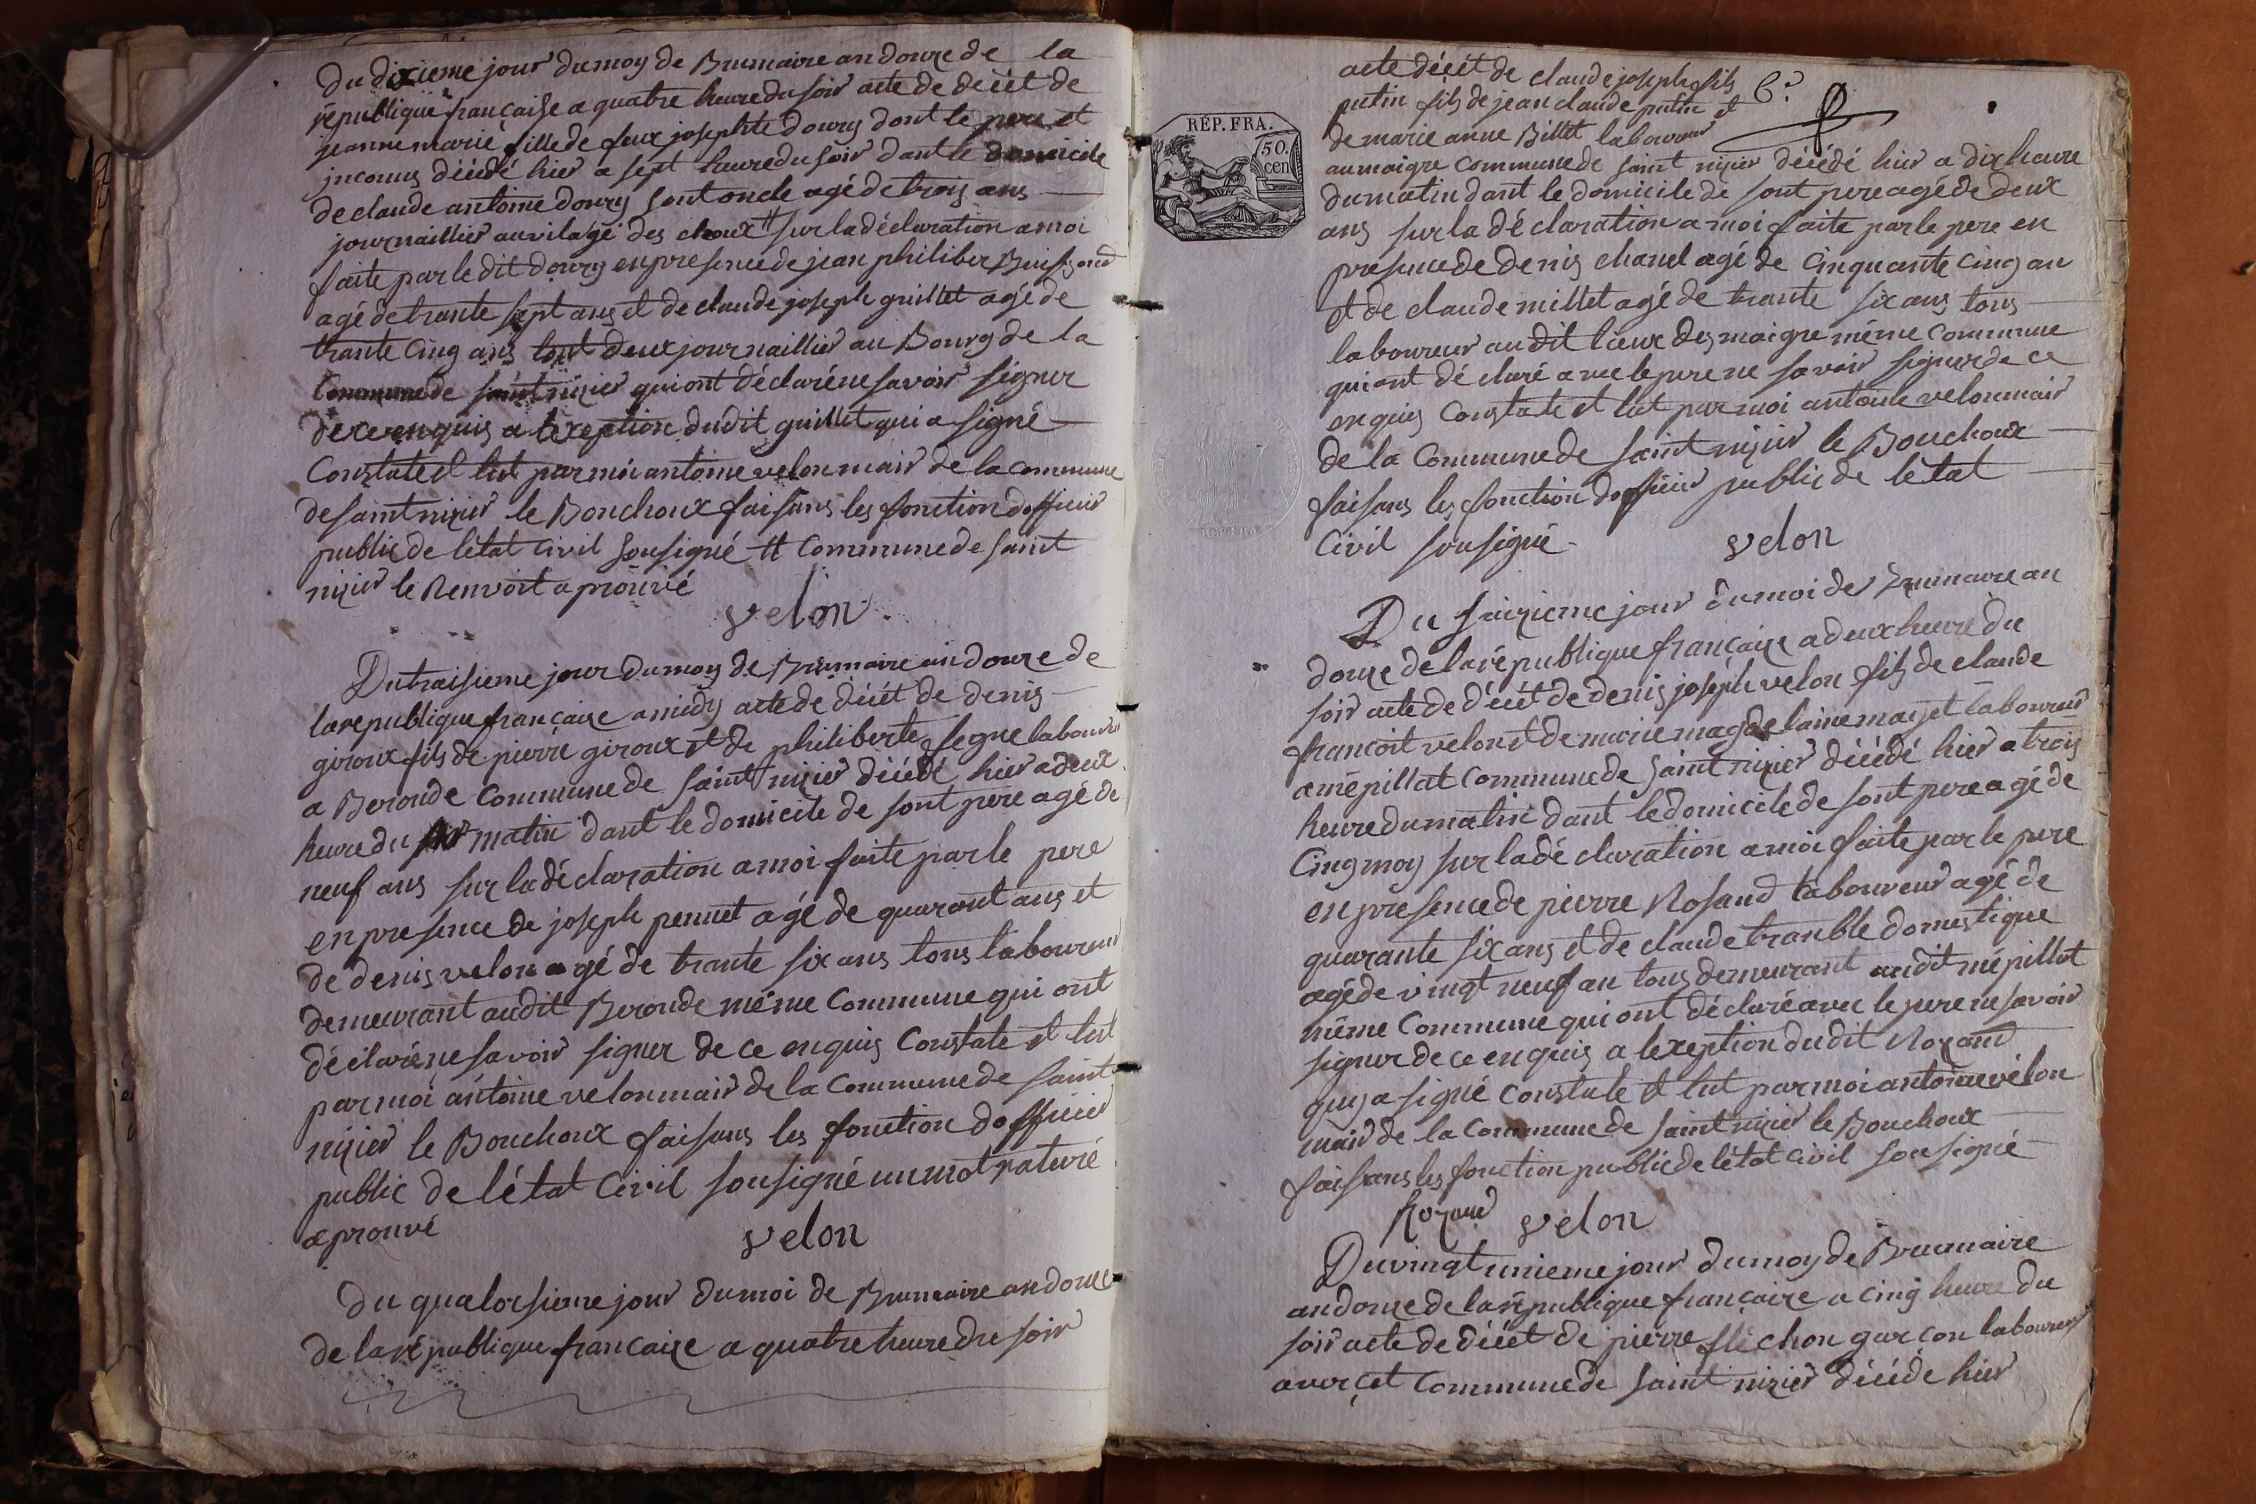 Du dixieme jour du moy de Brumaire an douze de la
république française a quatre heure du soir acte de décét de
jeanne marie fille de feux josephte doury dont le pere et
inconus décédé hier a sept heure du soir dant le domicile
de claude antoine doury sont oncle agé de trois ans
journaillier au vilagé des choux # sur la déclaration a moi
faite par le dit doury en presence de jean philiber Buisson
agé de trante sept ans et de claude joseph guillet agé de
trante cinq ans tout deux journaillier au Bourg de la
Commune de saint nizier qui ont déclaré ne savoir signer
de ce enquis a lexeption dudit guillet qui a signé
Constate et lut par moi antoine velon mair de la commune
de saint nizier le Bouchoux faisans les fonction dofficier
public de létat civil sousigné # Commune de saint
nizier le Renvoit aprouvé
velon
Du traisieme jour du moy de Brumaire an douze de
la republique française a midy acte de décét de denis
giroux fils de pierre giroux et de philiberte segue laboureur
a Beronde Commune de saint nizier décédé hier a deux
heure du matin dant le domicile de sont pere agé de
neuf ans sur la déclaration a moi faite par le pere
en presence de joseph pennet agé de quarant ans et
de denis velon agé de trante six ans tous laboureur
demeurant audit Beronde même Commune qui ont
déclaré ne savoir signer de ce enquis Constate et lut
par moi antoine velon mair de la Commune de saint
nizier le Bouchoux faisans les fonction dofficier
public de létat civil sousigné un mot raturé
aprouvé
velon
Du quatorsieme jour du moi de Brumaire an douze
de la république française a quatre heure du soir
acte décét de claude joseph fils
putin fils de jean claude putin et
de marie anne Billet laboureur
au maigre Commune de saint nizier décédé hier a dix heure
du matin dant le domicile de sont pere agé de deux
ans sur la déclaration a moi faite par le pere en
presence de denis chanel agé de Cinquante Cinq an
et de claude millet agé de trante six ans tous
laboureur au dit lieux des maigre même Commune
qui ont déclaré avec le pere ne savoir signer de ce
enquis Constate et lut par moi antoine velon mair
de la Commune de saint nizier le Bouchoux
faisans les fonction doficier public de létat
Civil sousigné
velon
RÉP. FRA.
50.
cen
Du saizieme jour du moi de Brumaire an
douze de la république française a deux heure du
soir acte de décét de denis joseph velon fils de claude
francoit velon et de marie magdelaine mazet laboureur
a mépillat Commune de saint nizier décédé hier a trois
heure du matin dant le domicile de sont pere agé de
Cinq moy sur la déclaration a moi faite par le pere
en presence de pierre Rosand laboureur agé de
quarante six ans et de claude tranble domestique
agé de vingt neuf an tous demeurant audit mépillat
même Commune qui ont déclaré avec le pere ne savoir
signer de ce enquis a lexeption dudit Rozand
quy a signé Constate et lut par moi antoine velon
mair de la Commune de saint nizier le Bouchoux
faisans les fonction public de létat civil sousigné
Rozand velon
Du vingt unieme jour du moy de Brumaire
an douze de la république française a cinq heure du
soir acte de décét de pierre fléchon garçon laboureur
a vorçet Commune de saint nizier décédé hier